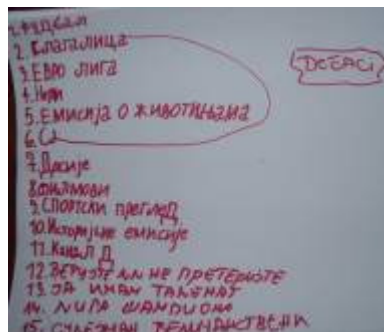 1. Фудбал
2. Слагалица
3. ЕВРО ЛИГА
5. Емисија о животињама
ДЕЧАCI
7. Досије
8. Филмови
9. СПОРТСКИ ПРЕГЛЕД
10. Историјске емисије
11. Канал Д
12. ВЕРУЈТЕ ИЛИ НЕ ПРЕТЕРУЈТЕ
13. ЈА ИМАМ ТАЛЕНАТ
14. ЛИГА ШАМПИОНА
15. СУЛЕЈМАН ВЕЛИЧАНСТВЕНИ